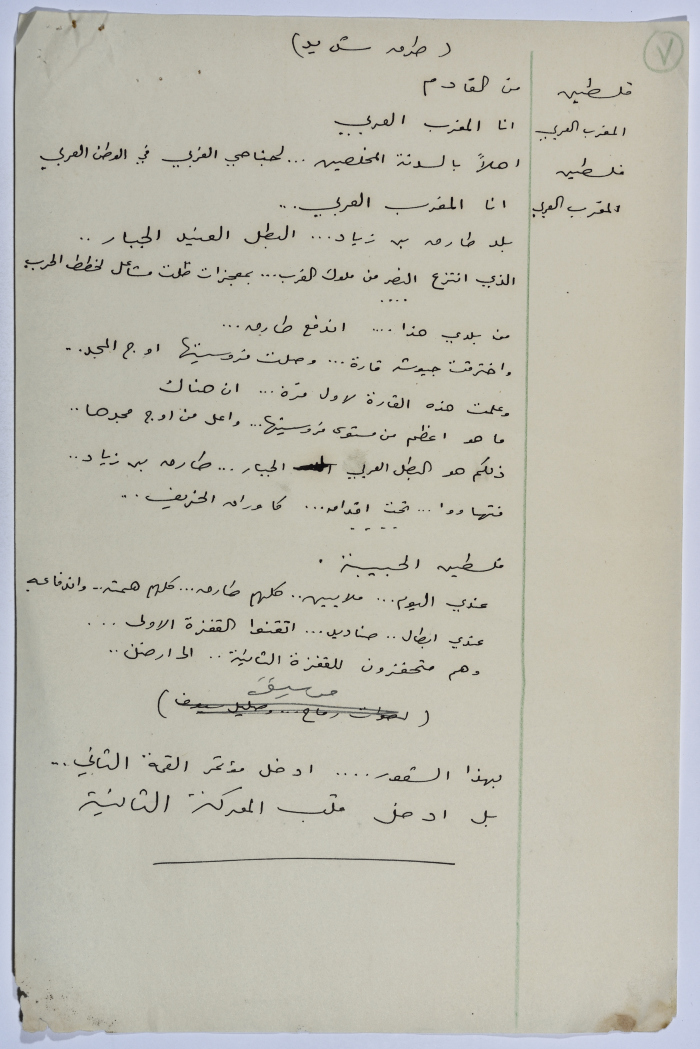 ٧
( طرق شديد )
فلسطين من القادم
المغرب العربي انا المغرب العربي
فلسطين اهلاً بالسدنة المخلصين ... لجناحي الغربي في الوطن العربي
المغرب العربي انا المغرب العربي ...
بلد طارق بن زياد ... البطل العنيد الجبار ..
الذي انتزع النصر من ملوك الغرب ... بمعجزات ظلت مشاعل لخطط الحرب
....
من بلدي هذا .... اندفع طارق ...
واخترقت جيوشه قارة ... وصلت فروسيتها اوج المجد ..
وعلمت هذه القارة لاول مرة ... ان هناك
ما هو اعظم من مستوى فروسيتها ... واعلى من اوج مجدها ..
ذلكم هو البطل العربي الجبار ... طارق بن زياد ..
فتهاووا ... تحت اقدامه ... كاوراق الخريف ...
....
فلسطين الحبيبة .
عندي اليوم ... ملايين .. كلهم طارق ... كلهم همة .. واندفاع
عندي ابطال .. صناديد ... اتقنوا القفزة الاولى ...
وهم متحفزون للقفزة الثانية .. الى ارضك ..
موسيقى
( اصوات رماح ... وصليل سيوف )
بهذا الشعور .... ادخل مؤتمر القمة الثاني ..
بل ادخل قلب المعركة الثانية